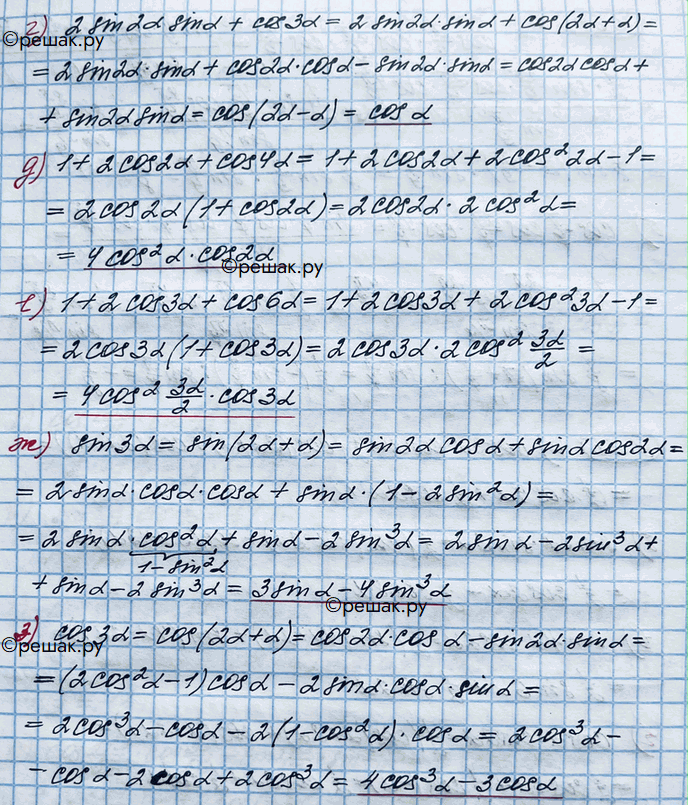 ©решак.ру
г) 2 sin2α sinα + cos3α = 2 sin2α·sinα + cos(2α+α) =
= 2 sin2α·sinα + cos2α·cosα − sin2α·sinα = cos2α cosα +
+ sin2α sinα = cos(2α−α) = cos α
д) 1 + 2cos2α + cos4α = 1 + 2cos2α + 2cos² 2α − 1 =
= 2cos2α(1 + cos2α) = 2cos2α · 2cos² α =
= 4cos² α · cos2α
©решак.ру
е) 1 + 2cos3α + cos6α = 1 + 2cos3α + 2cos² 3α − 1 =
= 2cos3α(1 + cos3α) = 2cos3α · 2cos² 3α/2 =
= 4cos² 3α/2 · cos3α
ж) sin3α = sin(2α+α) = sin2α cosα + sinα cos2α =
= 2sinα·cosα·cosα + sinα·(1 − 2sin² α) =
= 2sinα·cos² α + sinα − 2sin³ α = 2sinα − 2sin³ α +
1−sin² α
+ sinα − 2sin³ α = 3sinα − 4sin³ α
©решак.ру
з) cos3α = cos(2α+α) = cos2α·cosα − sin2α·sinα =
©решак.ру
= (2cos² α − 1)cosα − 2sinα·cosα·sinα =
= 2cos³ α − cosα − 2(1−cos² α)·cosα = 2cos³ α −
− cosα − 2cosα + 2cos³ α = 4cos³ α − 3cosα